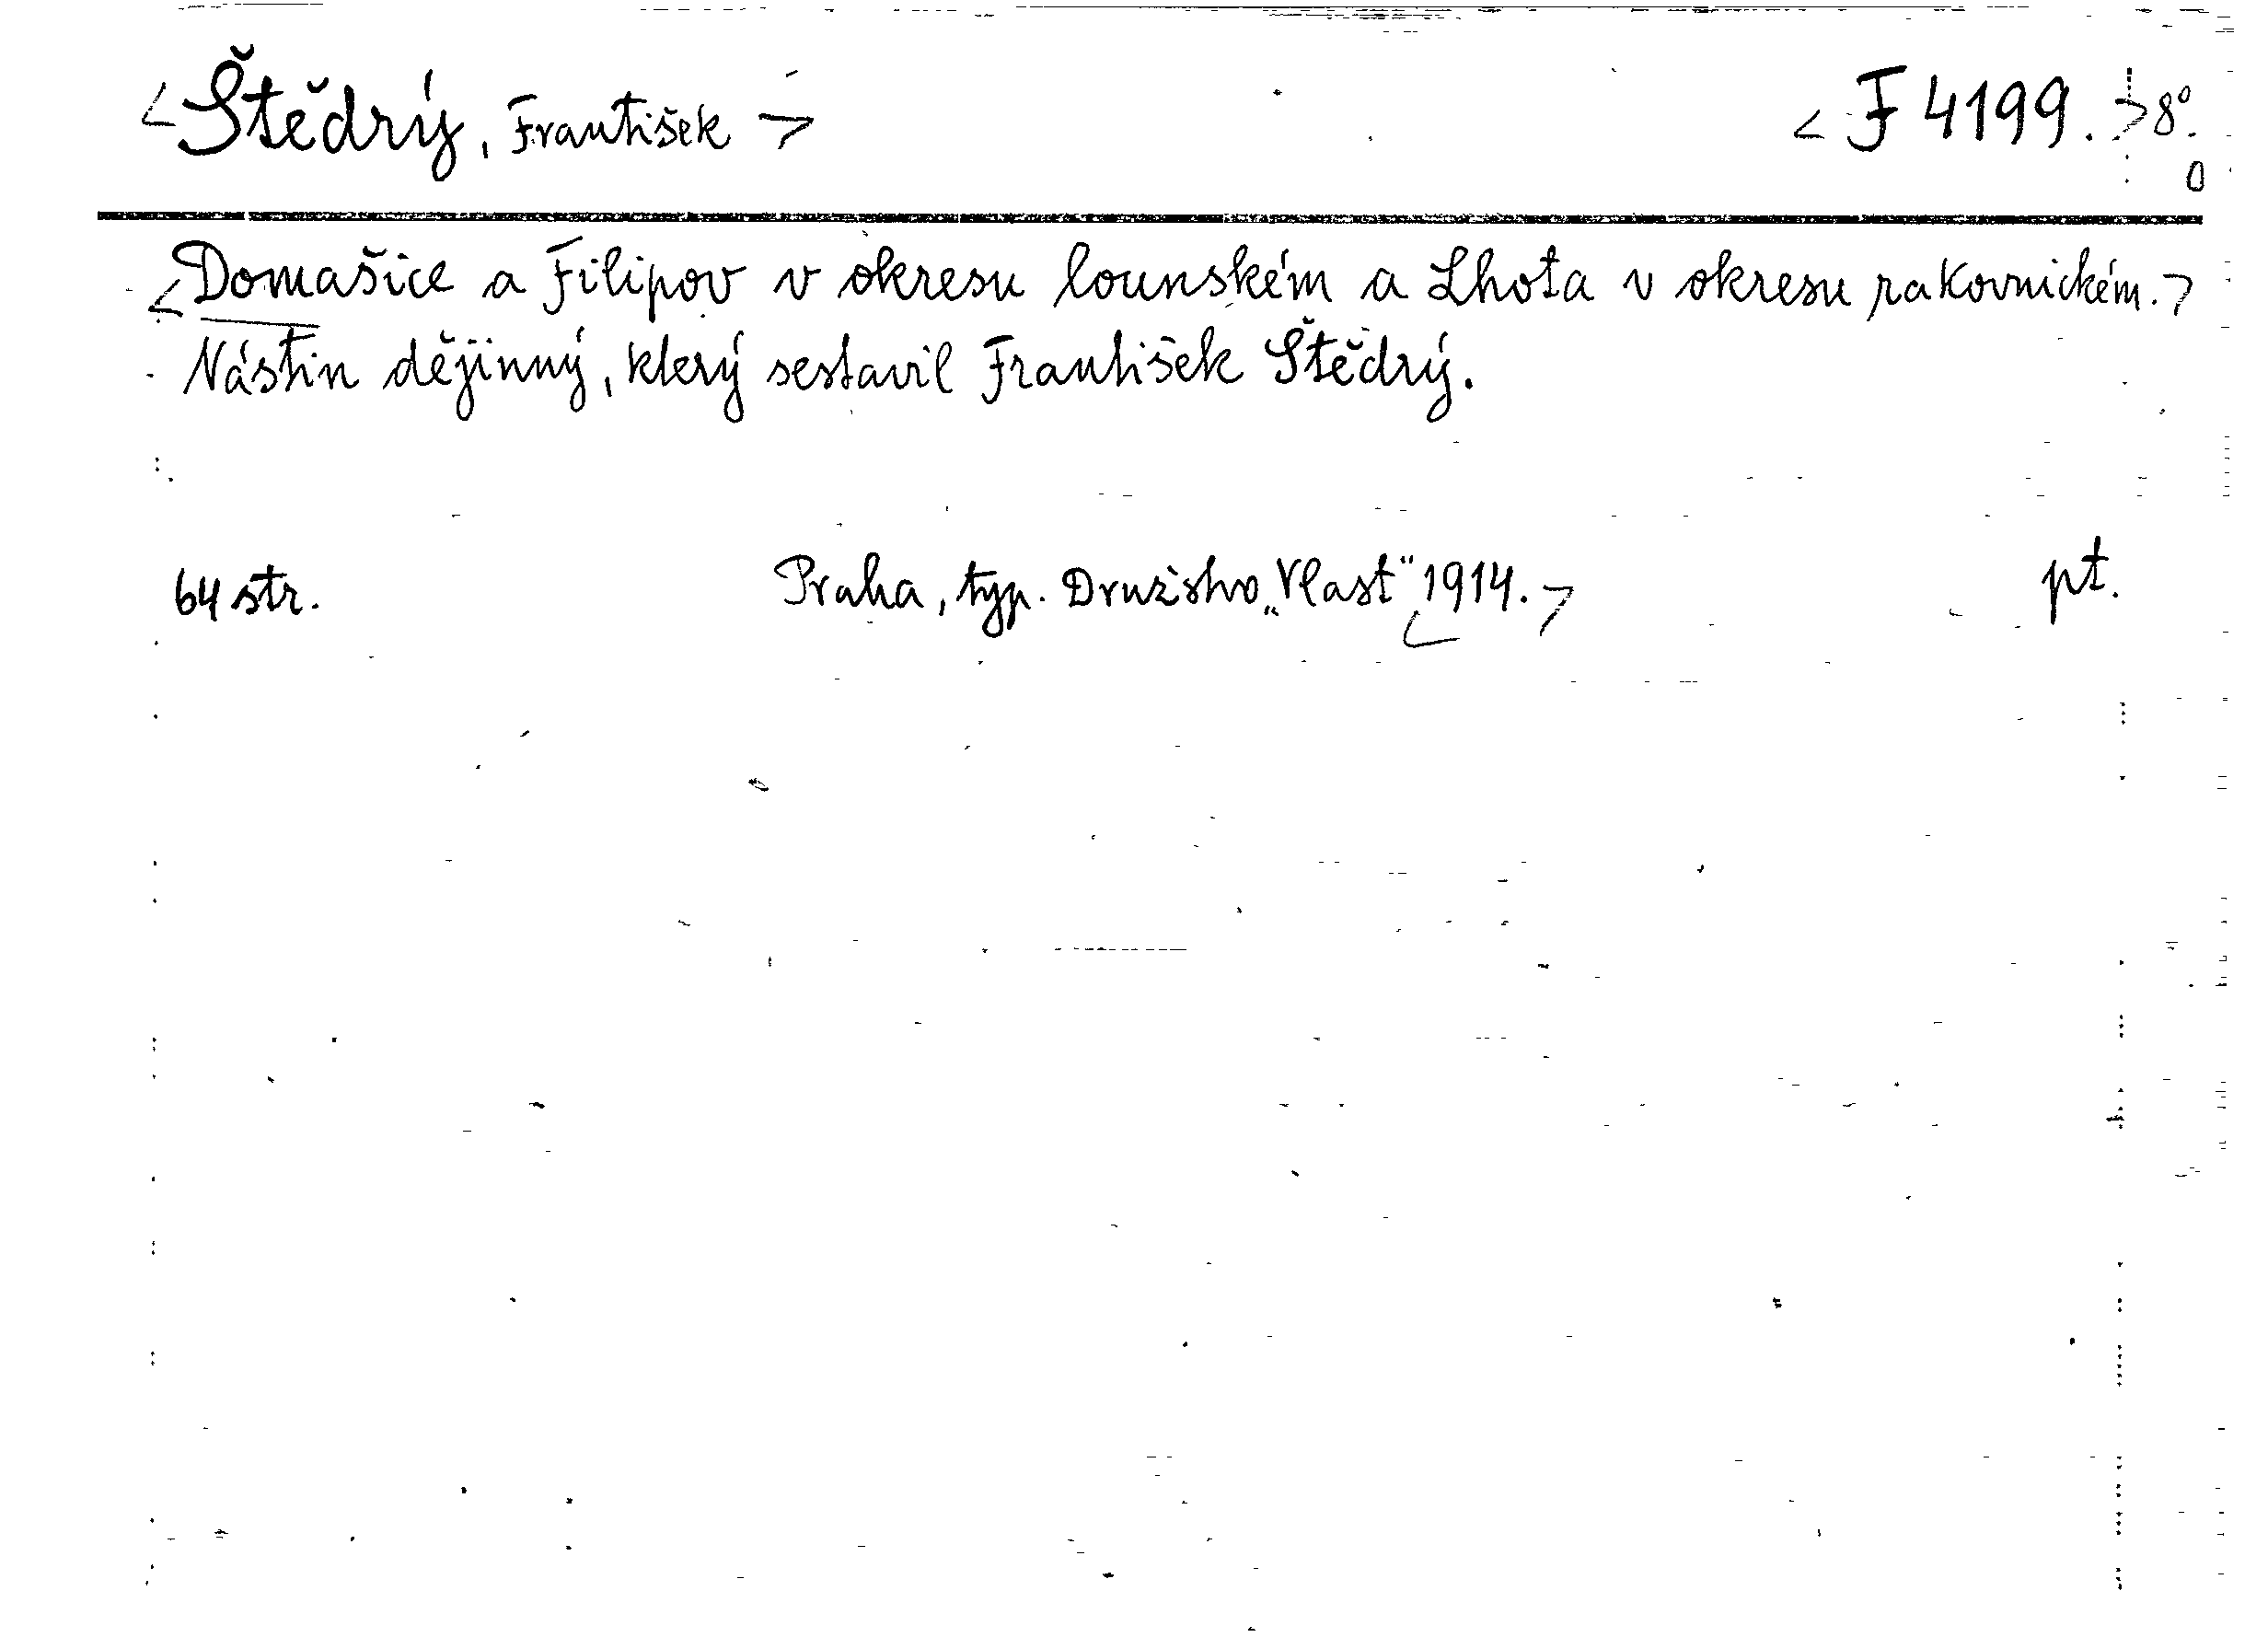 <Štědrý, František> <F 4199.> 8°.
0
<Domašice a Filipov v okresu lounském a Lhota v okresu rakovnickém.>
Nástin dějinný, který sestavil František Štědrý.
64 str. Praha, typ. Družstvo „Vlast“ <1914.> pt.